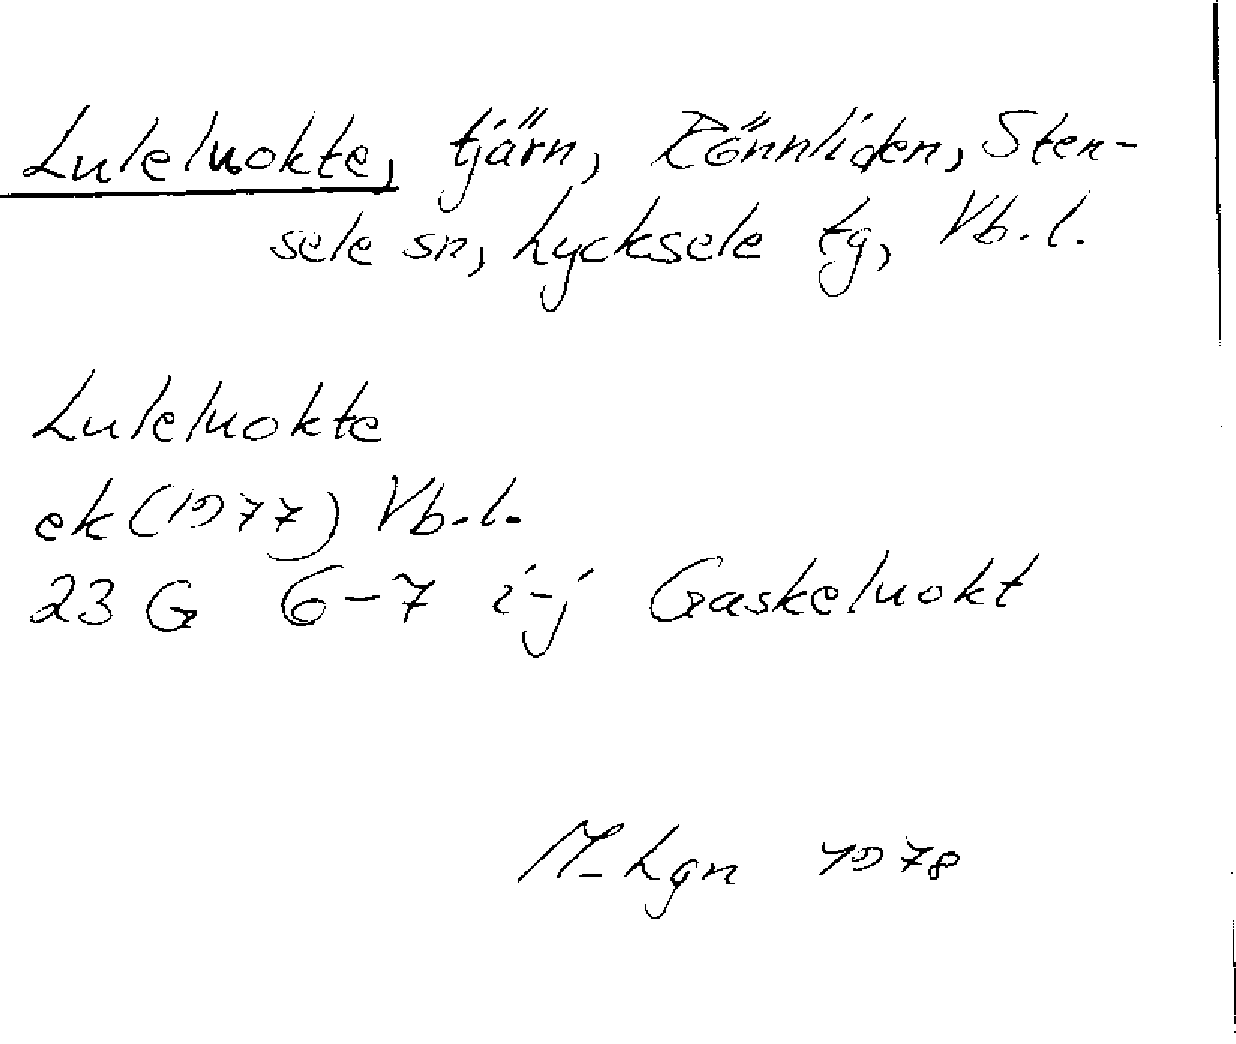 Luleluokte, tjärn, Rönnliden, Sten-
sele sn, Lycksele tg, Vb.l.
Luleluokte
ek (1977) Vb.l.
23 G 6-7 i-j Gaskeluokt
M-Lgn 1978